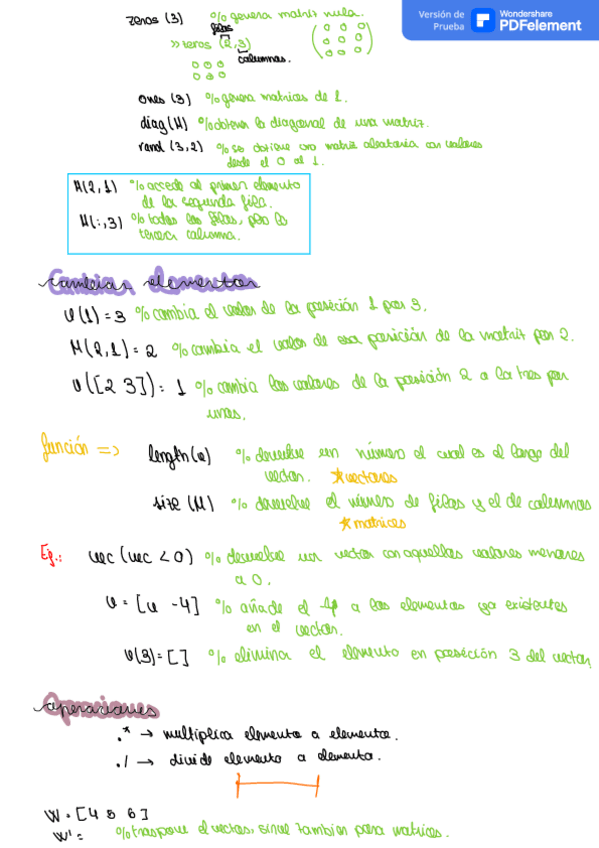 Versión de Prueba Wondershare PDFelement
zeros (3) % genera matriz nula.
filas
>> zeros (2,3)
columnas.
0 0 0
0 0 0
0 0 0
0 0 0
0 0 0
ones (3) % genera matrices de 1.
diag (M) % obtener la diagonal de una matriz.
rand (3,2) % se obtiene una matriz aleatoria con valores
desde el 0 al 1.
M(2,1) % accede al primer elemento
de la segunda fila.
M(:,3) % todas las filas, pero la
tercera columna.
Cambiar elementos
v(1) = 3 % cambia el valor de la posición 1 por 3.
M(2,1) = 2 % cambia el valor de esa posición de la matriz por 2.
v([2 3]) = 1 % cambia los valores de la posición 2 a la tres por
unos.
función => length(v) % devuelve un número el cual es el largo del
vector. *vectores
size (M) % devuelve el número de filas y el de columnas
*matrices
Ej.: vec (vec < 0) % devuelve un vector con aquellos valores menores
a 0.
v = [v -4] % añade el -4 a los elementos ya existentes
en el vector.
v(3) = [] % eliminar el elemento en posición 3 del vector
Operaciones
.* → multiplica elemento a elemento.
./ → divide elemento a elemento.
W = [4 5 6]
W' = % traspone el vector, sirve también para matrices.